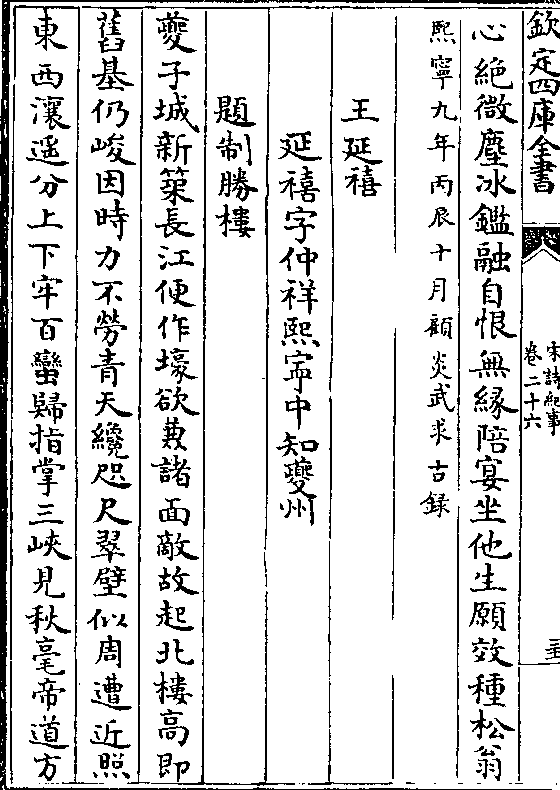 欽定四庫全書
宋詩紀事
卷二十六
心絶微塵冰鑑融自恨無縁陪宴坐他生願效種松翁
熙寧九年丙辰十月顧炎武求古録
王延禧
延禧字仲祥熙寧中知夔州
題制勝樓
夔子城新築長江便作壕欲兼諸面敵故起北樓高即
舊基仍峻因時力不勞青天纔咫尺翠壁似周遭近照
東西瀼遥分上下牢百蠻歸指掌三峽見秋毫帝道方